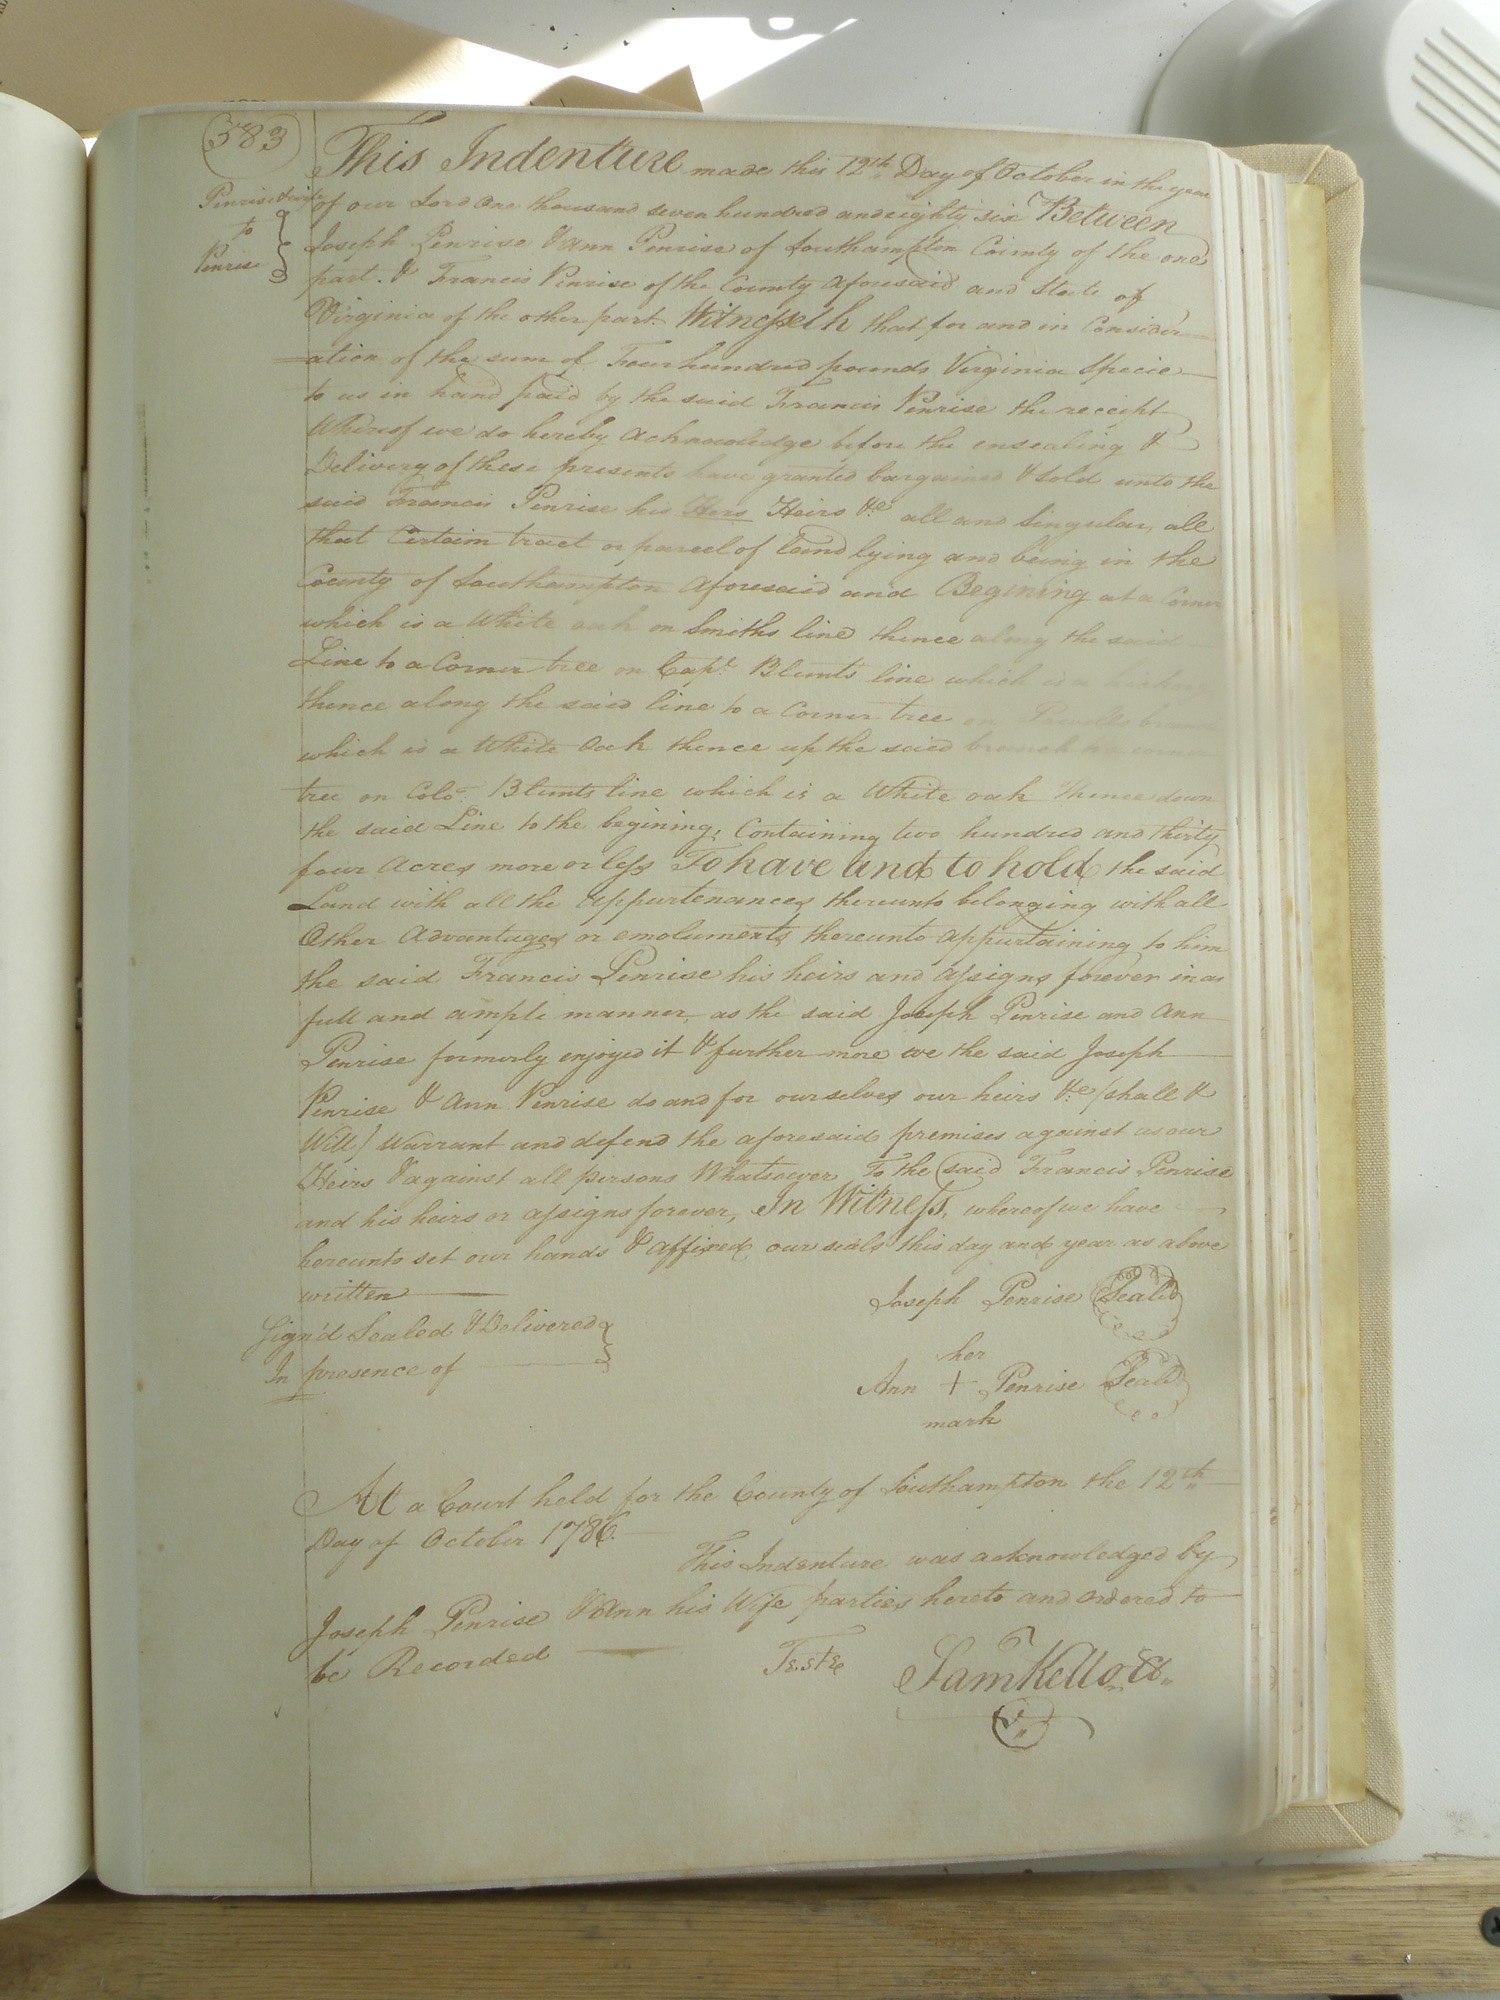 383
Penrise & wife
to
Penrise
This Indenture made this 12th Day of October in the year
of our Lord One thousand seven hundred and eighty six Between
Joseph Penrise & Ann Penrise of Southampton County of the one
part. & Francis Penrise of the County aforesaid and State of
Virginia of the other part. Witnesseth that for and in Consider
ation of the sum of Four hundred pounds Virginia Specie
to us in hand paid by the said Francis Penrise the receipt
Whereof we do hereby acknowledge before the ensealing &
Delivery of these presents have granted bargained & Sold unto the
said Francis Penrise his Hers Heirs &c all and Singular, all
that Certain tract or parcel of Land lying and being in the
County of Southampton aforesaid and Begining at a Corner
which is a White oak on Smiths line thence along the said
Line to a Corner tree on Capt. Blunts line which is a hickory
thence along the said line to a Corner tree on Powells branch
which is a White Oak thence up the said branch to a corner
tree on Colo. Blunts line which is a White oak Thence down
the said Line to the begining, Containing two hundred and thirty
four Acres more or less To have and to hold the said
Land with all the appurtenances thereunto belonging with all
Other Advantages or emoluments thereunto appurtaining to him
the said Francis Penrise his heirs and assigns forever in as
full and ample manner, as the said Joseph Penrise and Ann
Penrise formerly enjoyed it & further more we the said Joseph
Penrise & Ann Penrise do and for ourselves our heirs &c (shall &
Will) Warrant and defend the aforesaid premises against us our
Heirs & against all persons Whatsoever To the said Francis Penrise
and his heirs or assigns forever, In Witness, whereof we have
hereunto set our hands & affixed our seals this day and year as above
written
Joseph Penrise Seal
Sign'd Sealed & Delivered
In presence of
her
Ann + Penrise Seal
mark
At a Court held for the County of Southampton the 12th
Day of October 1786.
This Indenture was acknowledged by
Joseph Penrise & Ann his Wife parties hereto and Ordered to
be Recorded
Teste
Sam Kello